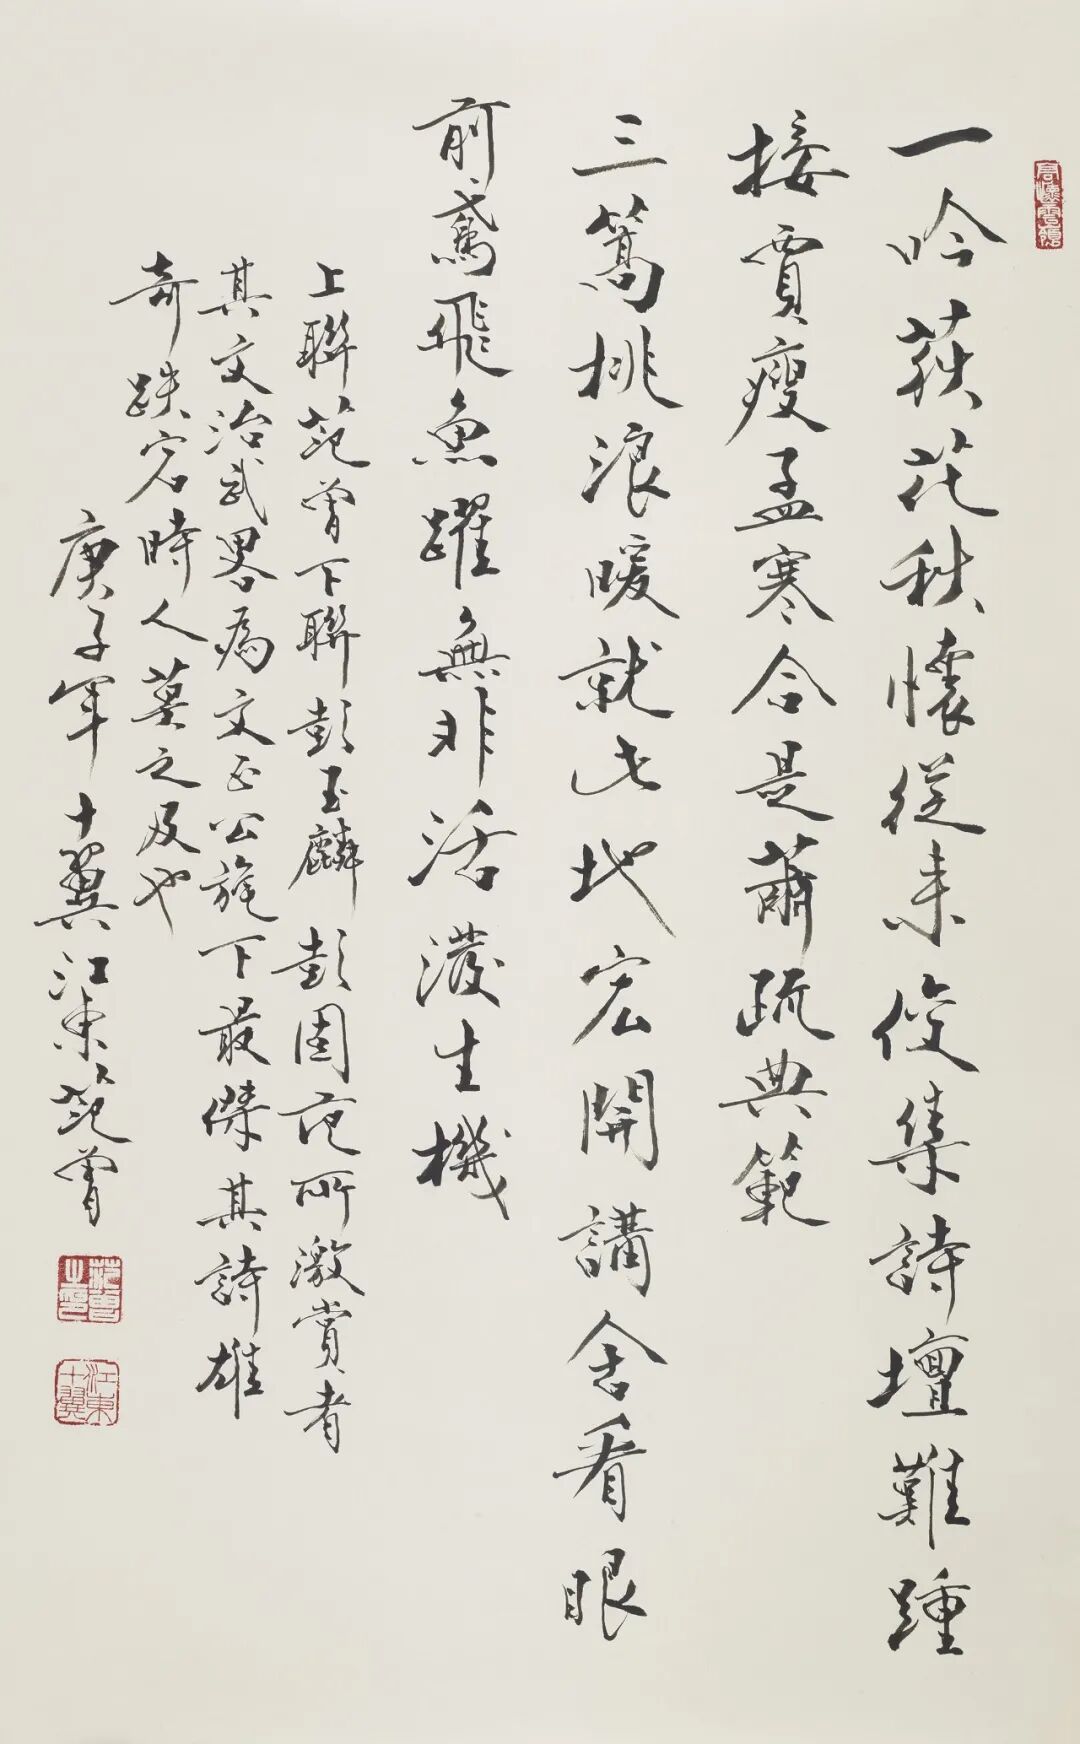 一吟荻花秋懷從來俊集詩壇難踵
接賈瘦孟寒合是蕭疏典範
三篙桃浪暖就此地宏開講舍看眼
前鳶飛魚躍無非活潑生機
上聯范曾下聯彭玉麟彭固范所激賞者
其文治武略為文正公旄下最傑其詩雄
奇跌宕時人莫之及也
庚子年十翼江東范曾
范曾之璽
江東十翼